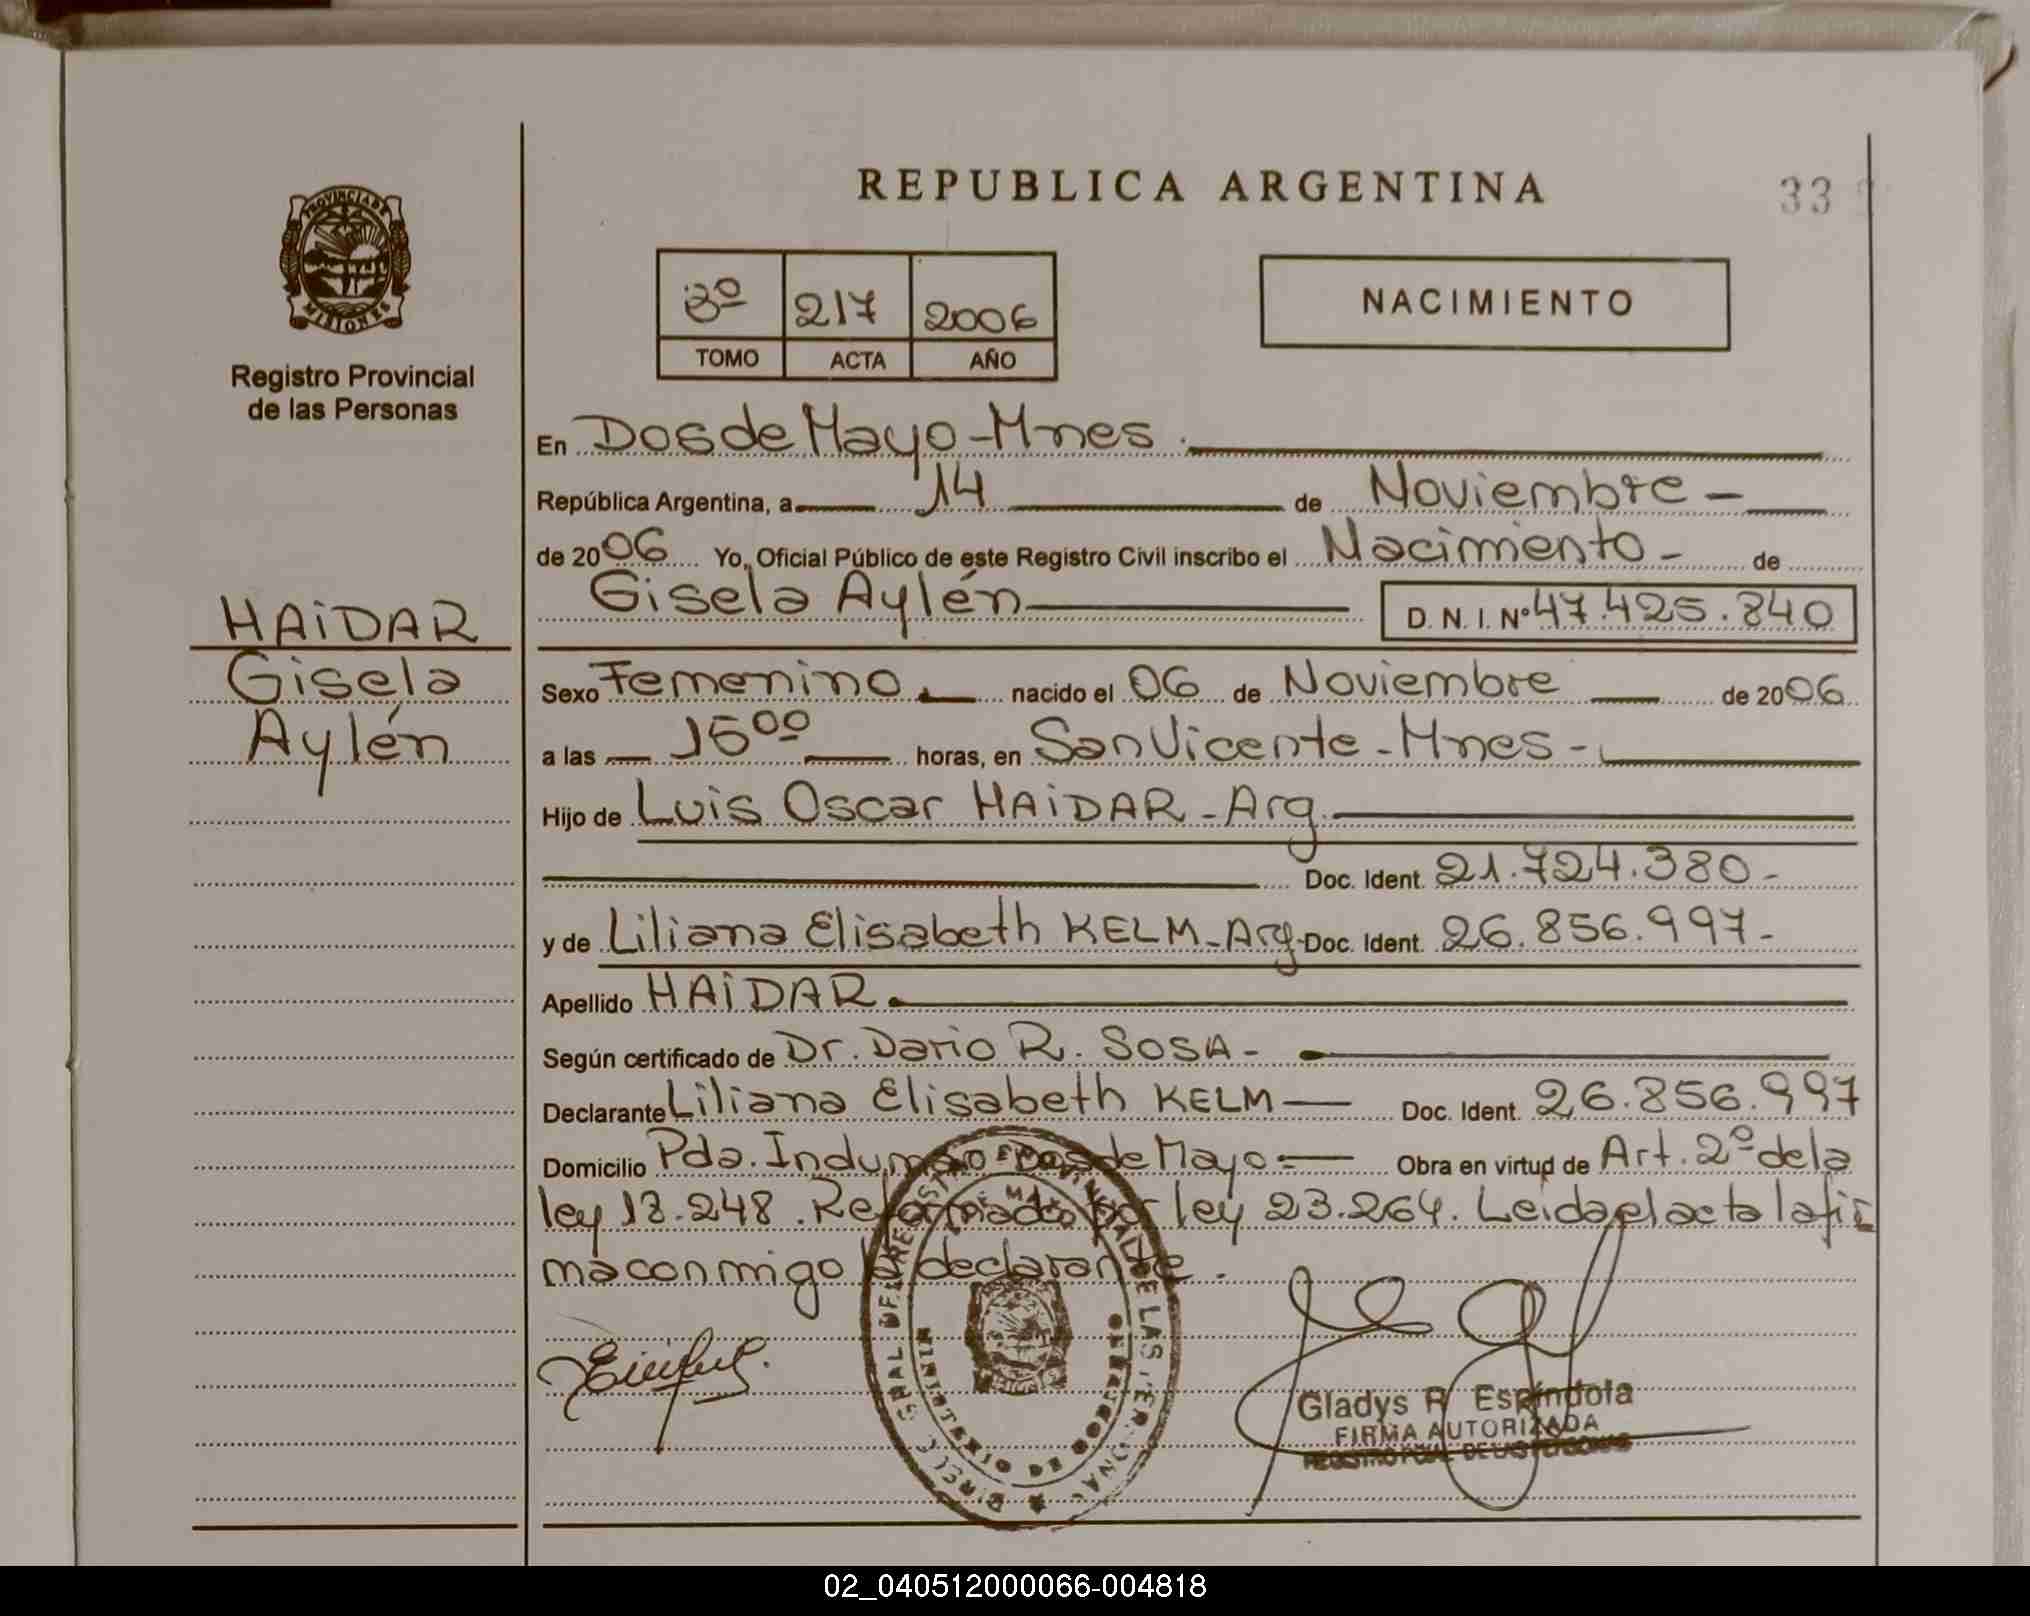 REPUBLICA ARGENTINA
33
PROVINCIA DE
MISIONES
Registro Provincial
de las Personas
3º 217 2006
TOMO ACTA AÑO
NACIMIENTO
En Dos de Mayo - Mnes.
República Argentina, a 14 de Noviembre -
de 2006 Yo, Oficial Público de este Registro Civil inscribo el Nacimiento - de
Gisela Aylén D. N. I. Nº 47.425.840
HAiDAR
Gisela
Aylén
Sexo Femenino nacido el 06 de Noviembre de 2006
a las 15ºº horas, en San Vicente - Mnes -
Hijo de Luis Oscar HAiDAR - Arg.
Doc. Ident. 21.724.380 -
y de Liliana Elisabeth KELM - Arg. Doc. Ident. 26.856.997 -
Apellido HAiDAR
Según certificado de Dr. Dario R. SOSA -
Declarante Liliana Elisabeth KELM Doc. Ident. 26.856.997
Domicilio Pda. Indumar Dos de Mayo - Obra en virtud de Art. 2º de la
ley 13.248. Reformado por ley 23.264. Leida el acta la fir
ma conmigo la declarante.
Gladys R Espíndola
FIRMA AUTORIZADA
02_040512000066-004818